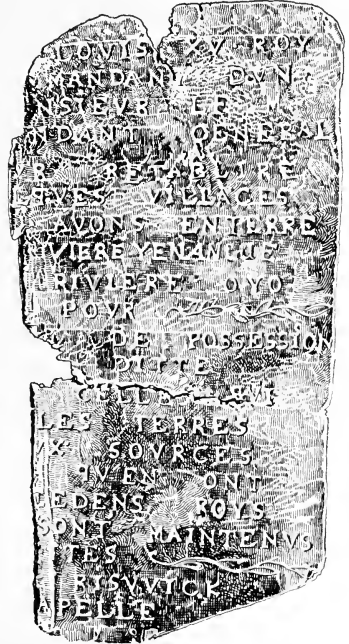 LOUIS XV ROY
MANDANT D'VN
NSIEVR LE M
NDANT GENERAL
RETABLIRE
VILLAGES
AVONS ENTERRE
VIERE YENANGUE
RIVIERE OYO
POVR
DE POSSESSION
DITTE
CELLE QVE
LES TERRES
X SOVRCES
QVEN ONT
CEDENS ROYS
SONT MAINTENVS
TES
RISVVICK
APELLE